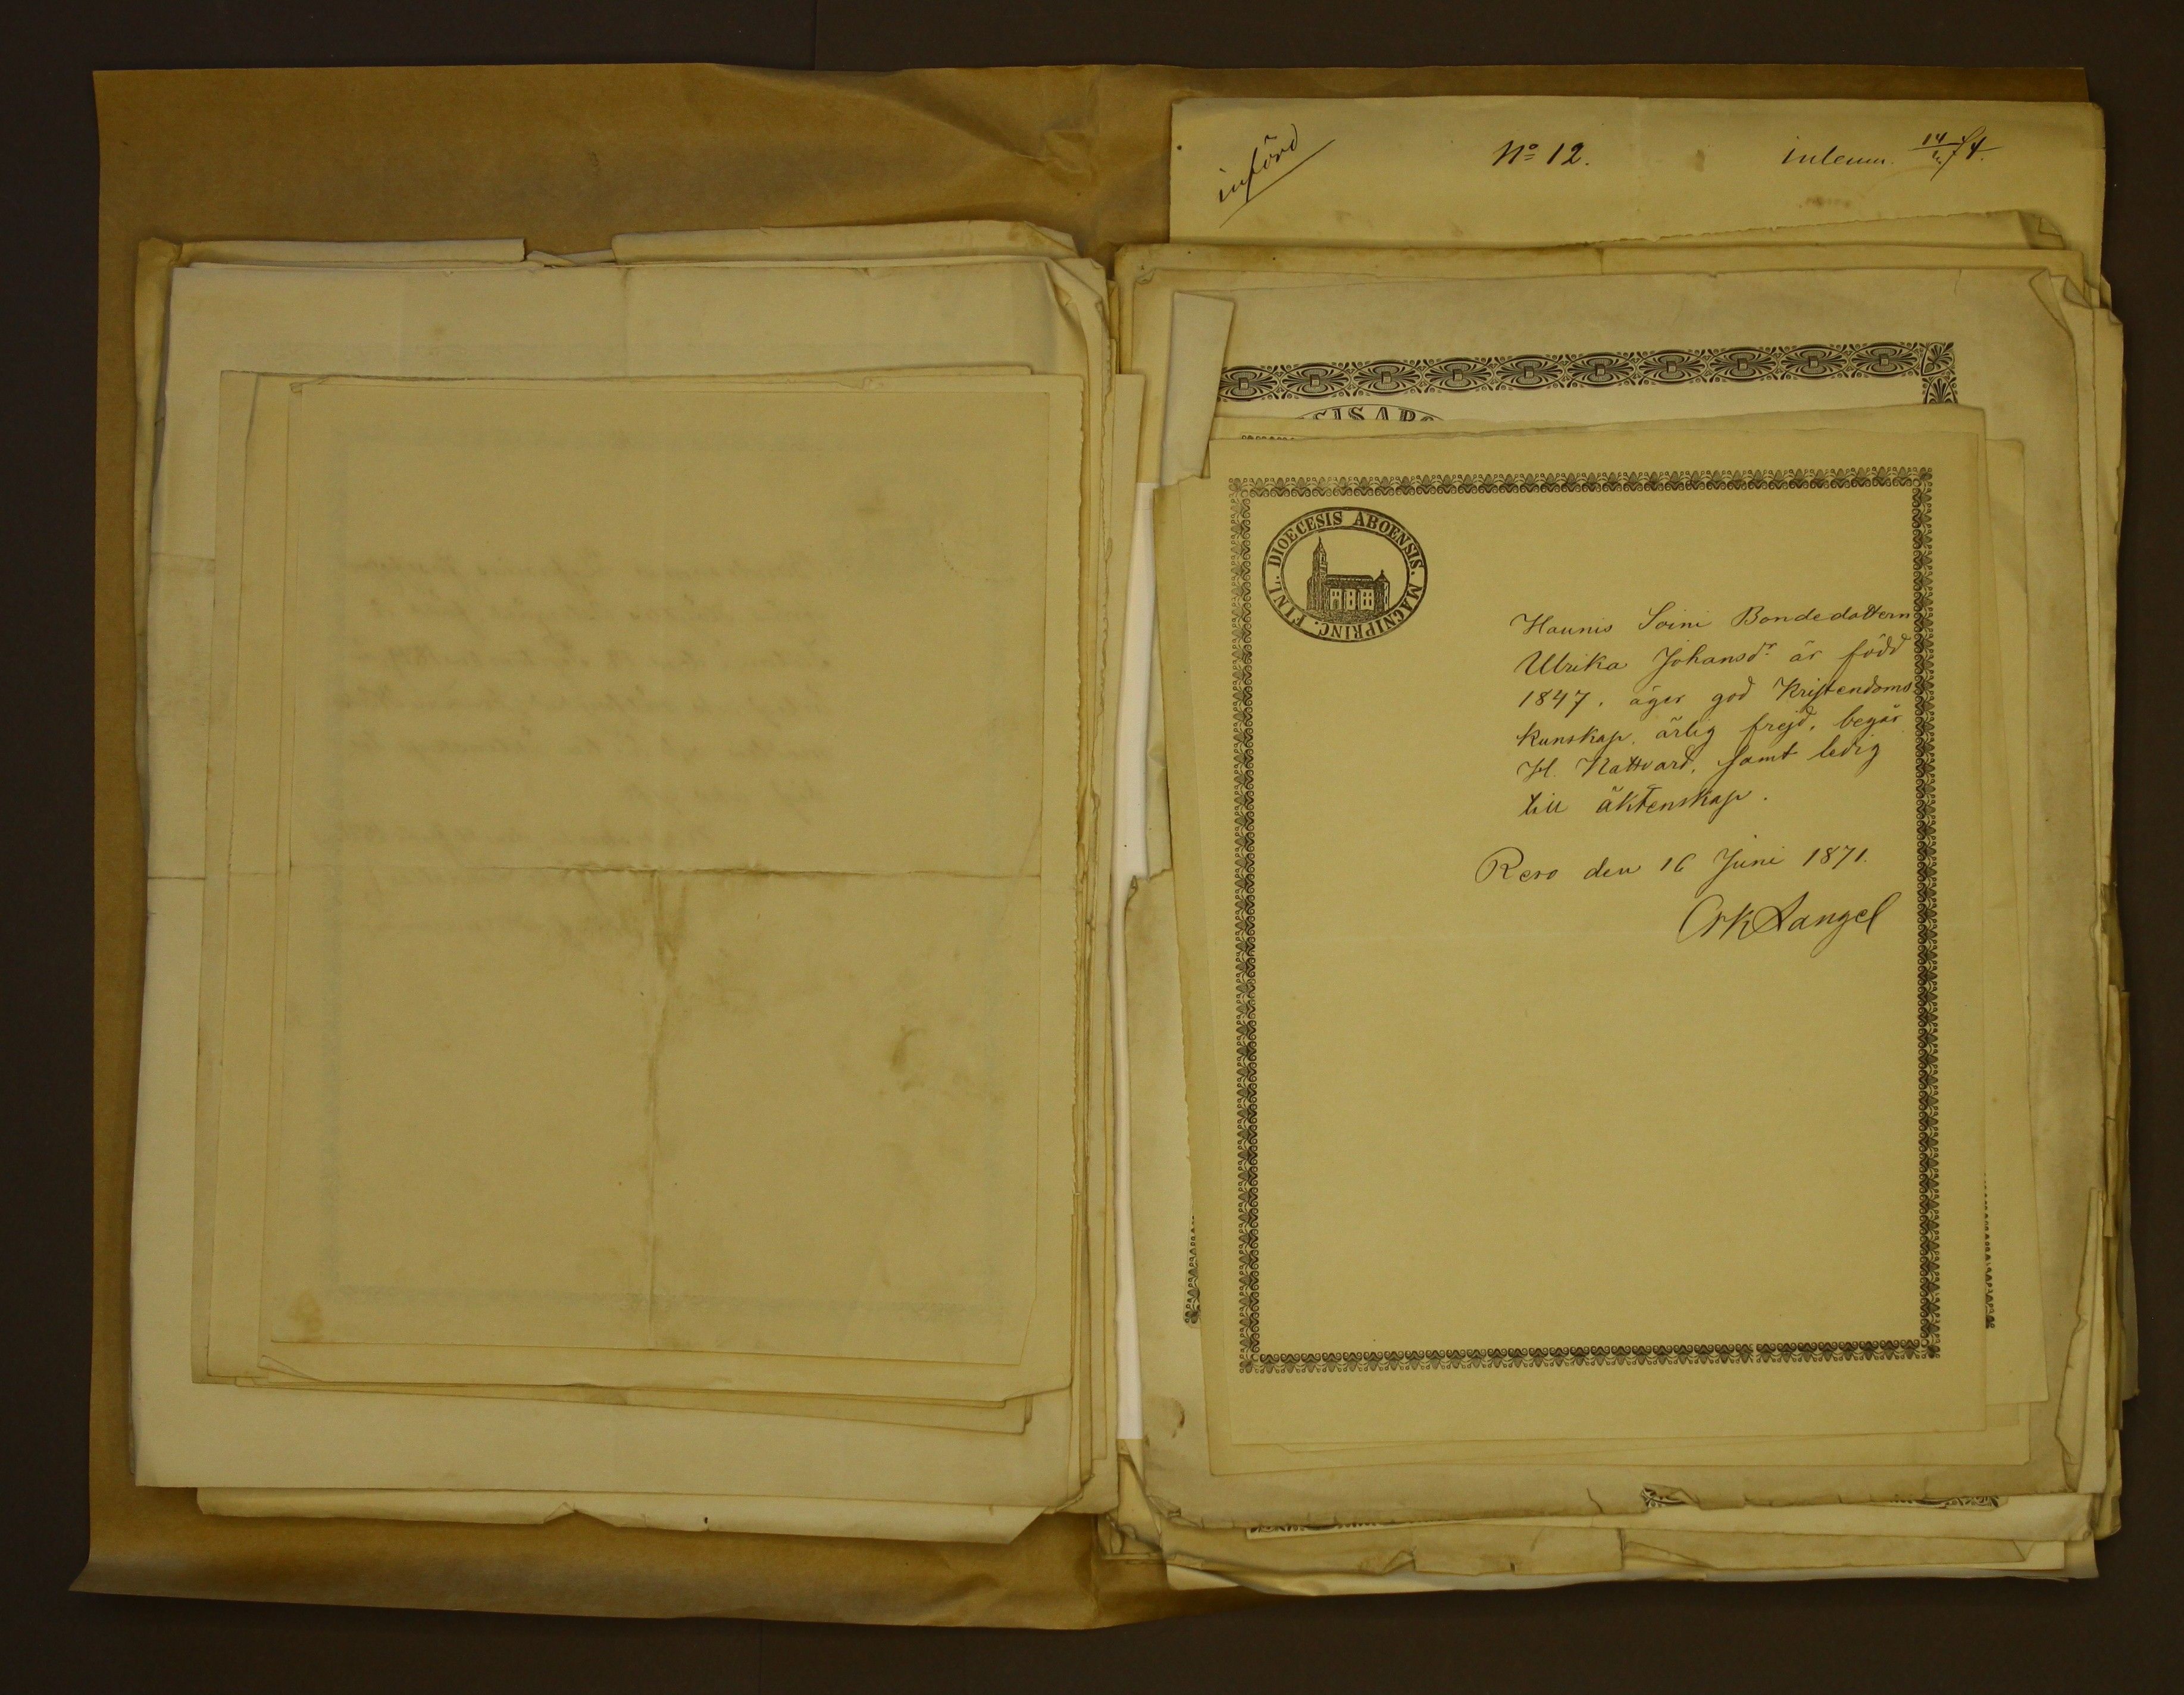 införd
No 12.
inlemn. 14/4 74.
SIS ABO
DIOECESIS ABOENSIS. MAGNIPRINC. FINL.
Haunis Soini Bondedottern
Ulrika Johansdr. är född
1847, äger god Kristendoms
kunskap, ärlig frejd, begår
H. Nattvard, samt ledig
till äktenskap.
Reso den 16 Juni 1871.